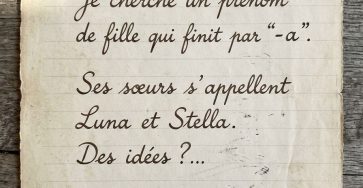 Je cherche un prénom
de fille qui finit par “-a”.
Ses sœurs s’appellent
Luna et Stella.
Des idées ?...